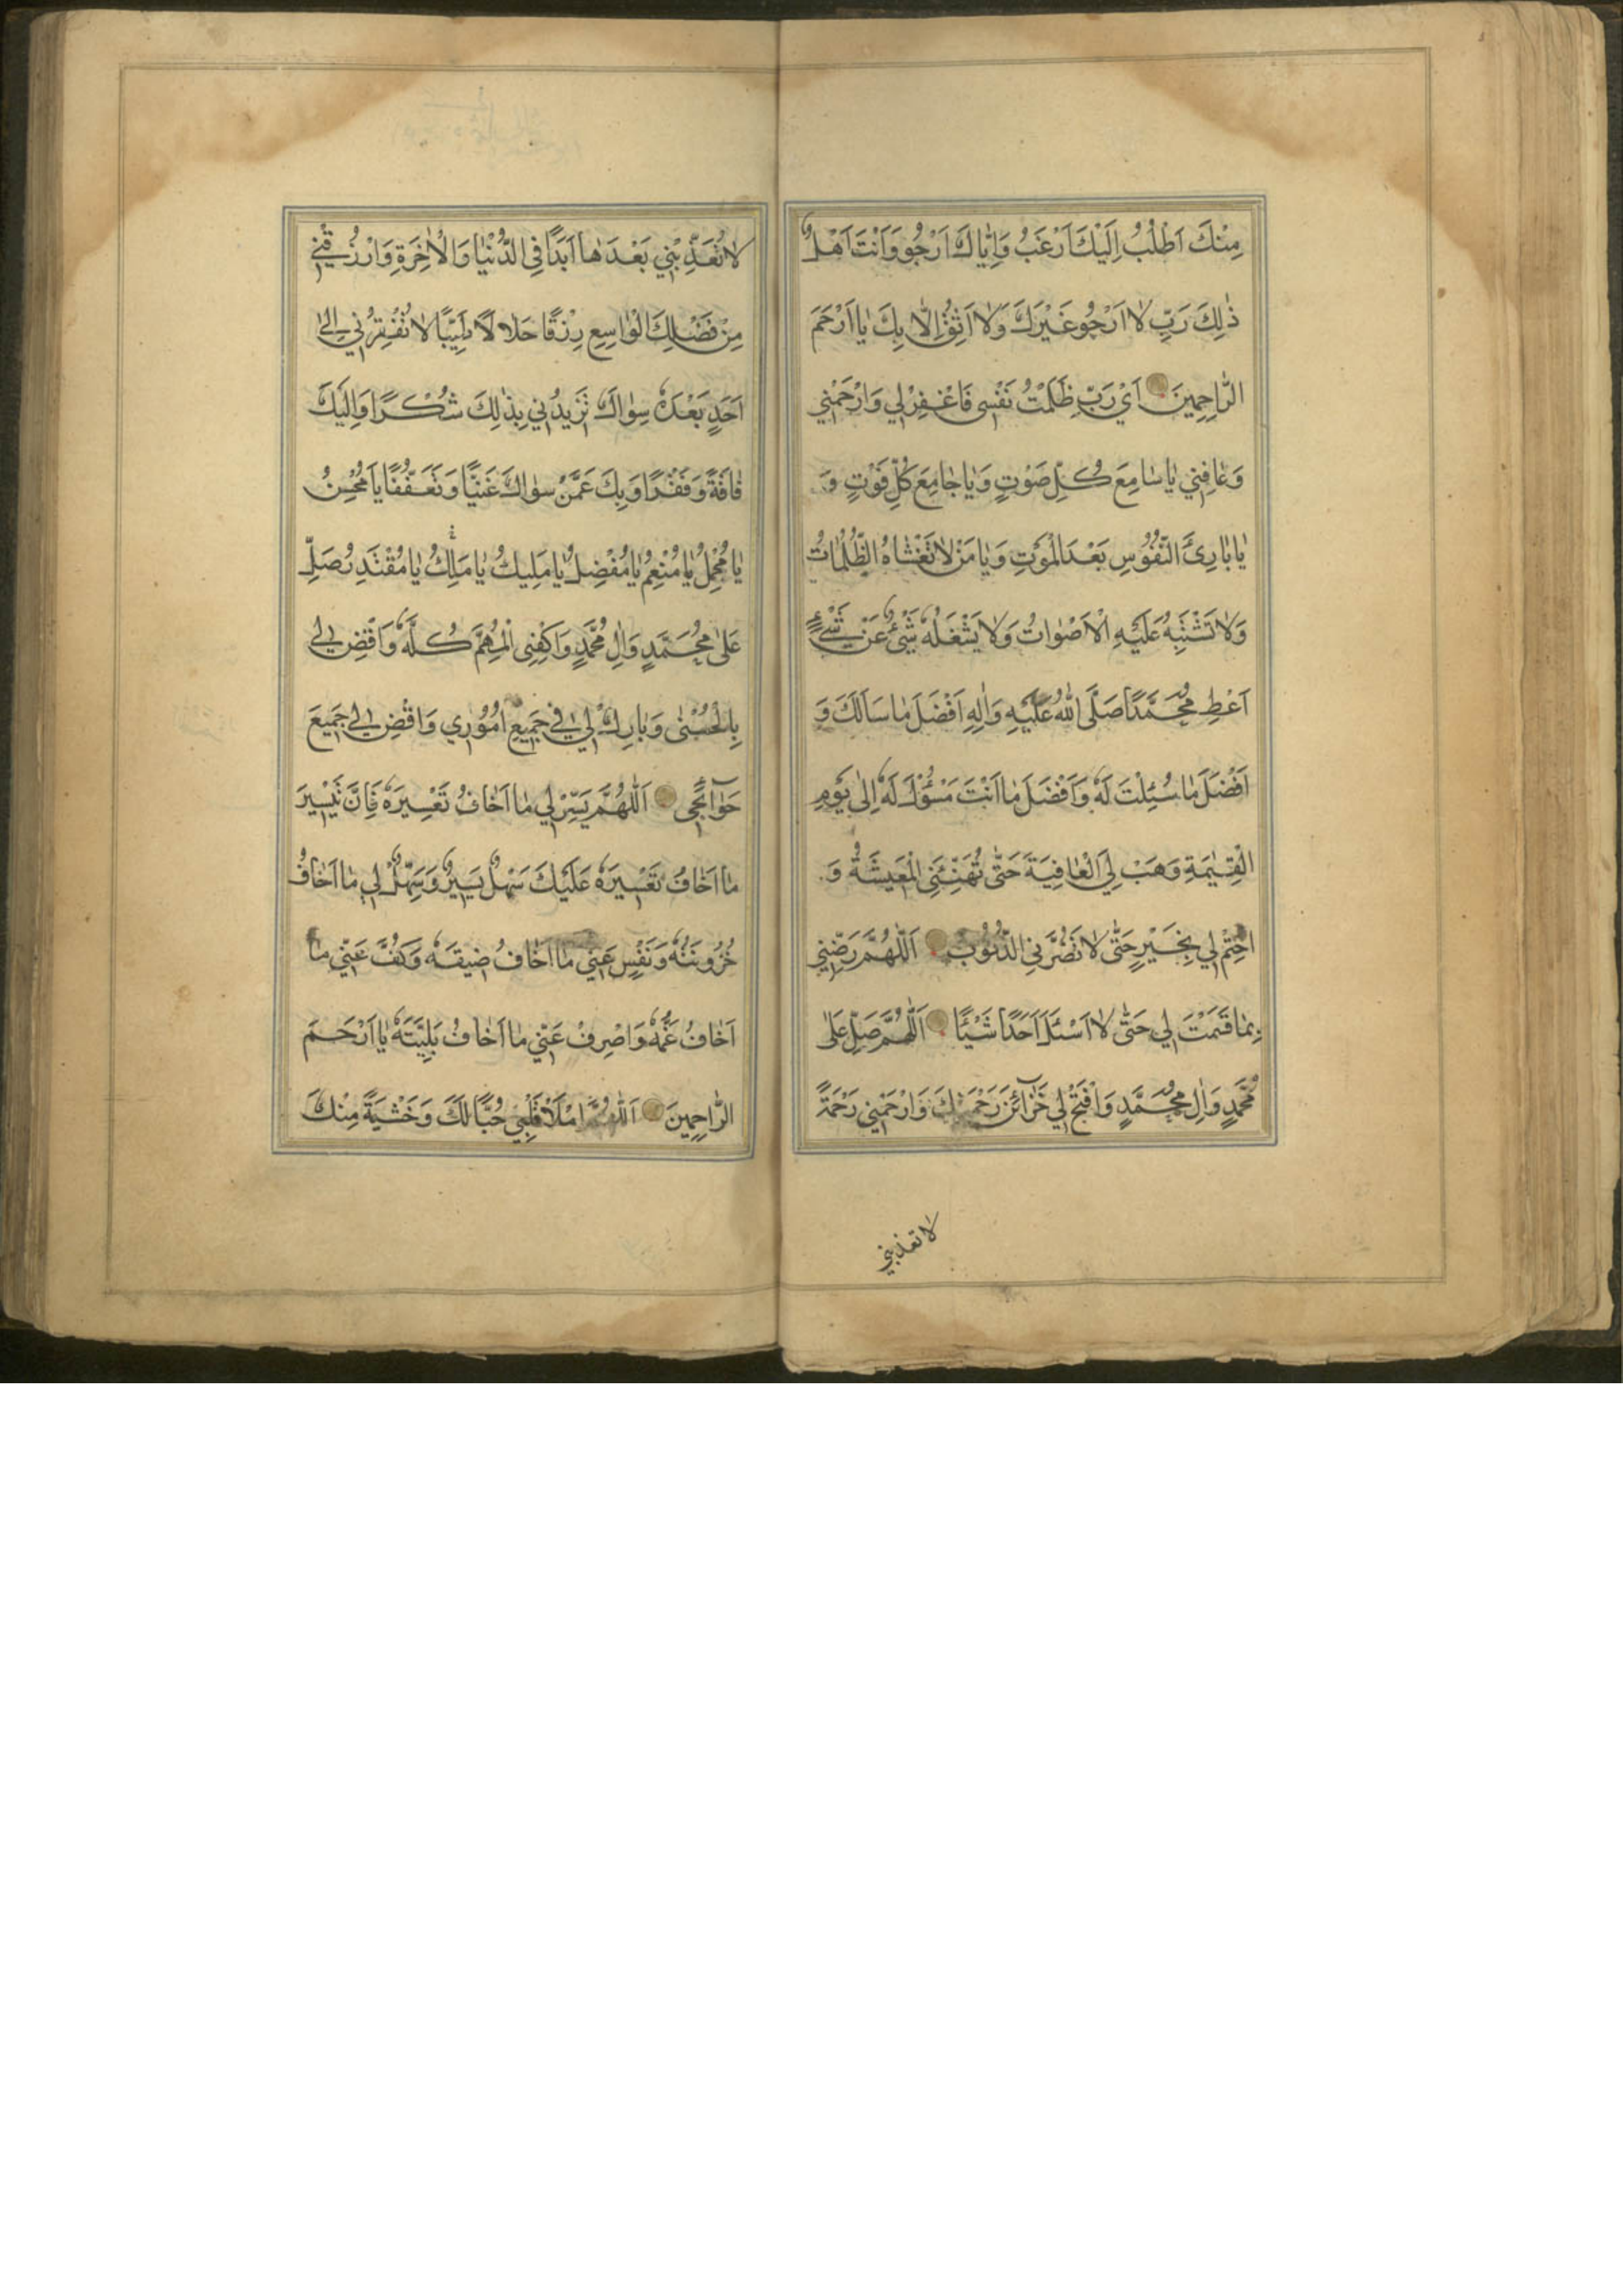 مِنْكَ اَطْلُبُ اِلَيْكَ اَرْغَبُ وَاِيّاكَ اَرْجُو وَاَنْتَ اَهْلُ
ذٰلِكَ رَبِّ لا اَرْجُو غَيْرَكَ وَلا اَثِقُ اِلّا بِكَ يا اَرْحَمَ
الرّاحِمينَ اَيْ رَبِّ ظَلَمْتُ نَفْسي فَاغْفِرْ لي وَارْحَمْني
وَعافِني يا سامِعَ كُلِّ صَوْتٍ وَيا جامِعَ كُلِّ فَوْتٍ وَ
يا بارِئَ النُّفُوسِ بَعْدَ الْمَوْتِ وَيا مَنْ لا تَغْشاهُ الظُّلُماتُ
وَلا تَشْتَبِهُ عَلَيْهِ الْاَصْواتُ وَلا يَشْغَلُهُ شَيْءٌ عَنْ شَيْءٍ
اَعْطِ مُحَمَّدًا صَلَّى اللهُ عَلَيْهِ وَاٰلِهِ اَفْضَلَ ما سَاَلَكَ وَ
اَفْضَلَ ما سُئِلْتَ لَهُ وَاَفْضَلَ ما اَنْتَ مَسْؤُلٌ لَهُ اِلٰى يَوْمِ
الْقِيٰمَةِ وَهَبْ لِيَ الْعافِيَةَ حَتّٰى تُهَنِّئَنِي الْمَعيشَةُ وَ
اخْتِمْ لي بِخَيْرٍ حَتّٰى لا تَضُرَّنِي الذُّنُوبُ اَللّٰهُمَّ رَضِّني
بِما قَسَمْتَ لي حَتّٰى لا اَسْئَلَ اَحَدًا شَيْئًا اَللّٰهُمَّ صَلِّ عَلٰى
مُحَمَّدٍ وَاٰلِ مُحَمَّدٍ وَافْتَحْ لي خَزآئِنَ رَحْمَتِكَ وَارْحَمْني رَحْمَةً
لا تعذبني
لا تُعَذِّبْني بَعْدَها اَبَدًا فِي الدُّنْيا وَالْاٰخِرَةِ وَارْزُقْني
مِنْ فَضْلِكَ الْواسِعِ رِزْقًا حَلالًا طَيِّبًا لا تُفْقِرُني اِلٰى
اَحَدٍ بَعْدَهُ سِواكَ تَزيدُني بِذٰلِكَ شُكْرًا وَاِلَيْكَ
فاقَةً وَفَقْرًا وَبِكَ عَمَّنْ سِواكَ غَنِيًّا وَتَعَفُّفًا يا مُحْسِنُ
يا مُجْمِلُ يا مُنْعِمُ يا مُفْضِلُ يا مَليكُ يا مالِكُ يا مُقْتَدِرُ صَلِّ
عَلٰى مُحَمَّدٍ وَاٰلِ مُحَمَّدٍ وَاكْفِنِي الْمُهِمَّ كُلَّهُ وَاقْضِ لي
بِالْحُسْنٰى وَبارِكْ لي في جَميعِ اُمُوري وَاقْضِ لي جَميعَ
حَوآئِجي اَللّٰهُمَّ يَسِّرْ لي ما اَخافُ تَعْسيرَهُ فَاِنَّ تَيْسيرَ
ما اَخافُ تَعْسيرَهُ عَلَيْكَ سَهْلٌ يَسيرٌ وَسَهِّلْ لي ما اَخافُ
حُزُونَتَهُ وَنَفِّسْ عَنّي ما اَخافُ ضيقَهُ وَكُفَّ عَنّي ما
اَخافُ غَمَّهُ وَاصْرِفْ عَنّي ما اَخافُ بَلِيَّتَهُ يا اَرْحَمَ
الرّاحِمينَ اَللّٰهُمَّ امْلَأْ قَلْبي حُبًّا لَكَ وَخَشْيَةً مِنْكَ